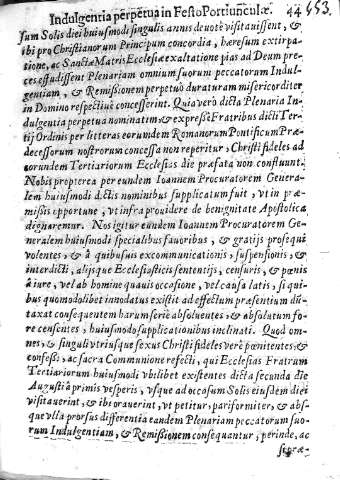 Indulgentia perpetua in Festo Portiunculæ. 44 453.
sum Solis diei huiusmodi singulis annis deuotè visitauissent, &
ibi pro Christianorum Principum concordia, hæresum extirpa
tione, ac Sanctæ Matris Ecclesiæ exaltatione pias ad Deum pre-
ces effudissent Plenariam omnium suorum peccatorum Indul-
gentiam, & Remissionem perpetuò duraturam misericorditer
in Domino respectiuè concesserint. Quia verò dicta Plenaria In-
dulgentia perpetua nominatim, & expressè Fratribus dicti Ter-
tij Ordinis per litteras eorundem Romanorum Pontificum Præ-
decessorum nostrorum concessa non reperitur, Christi fideles ad
eorundem Tertiariorum Ecclesias die præfata non confluunt.
Nobis propterea per eundem Ioannem Procuratorem Genera-
lem huiusmodi dictis nominibus supplicatum fuit, vt in præ-
missis opportunè, vt infra prouidere de benignitate Apostolica
dignaremur. Nos igitur eundem Ioannem Procuratorem Ge-
neralem huiusmodi specialibus fauoribus, & gratijs prosequi
volentes, & à quibusuis excommunicationis, suspensionis, &
interdicti, alijsque Ecclesiasticis sententijs, censuris, & pœnis
à iure, vel ab homine quauis occasione, vel causa latis, si qui-
bus quomodolibet innodatus existit ad effectum præsentium dũ-
taxat consequentem harum seriè absoluentes, & absolutum fo-
re censentes, huiusmodi supplicationibus inclinati. Quod om-
nes, & singuli vtriusque sexus Christi fideles verè pœnitentes, &
confessi, ac sacra Communione refecti, qui Ecclesias Fratrum
Tertiariorum huiusmodi vbilibet existentes dicta secunda die
Augusti à primis vesperis, vsque ad occasum Solis eiusdem diei
visitauerint, & ibi orauerint, vt petitur, pariformiter, & abs-
que vlla prorsus differentia eandem Plenariam peccatorum suo-
rum Indulgentiam, & Remissionem consequantur, perinde, ac
sepræ-